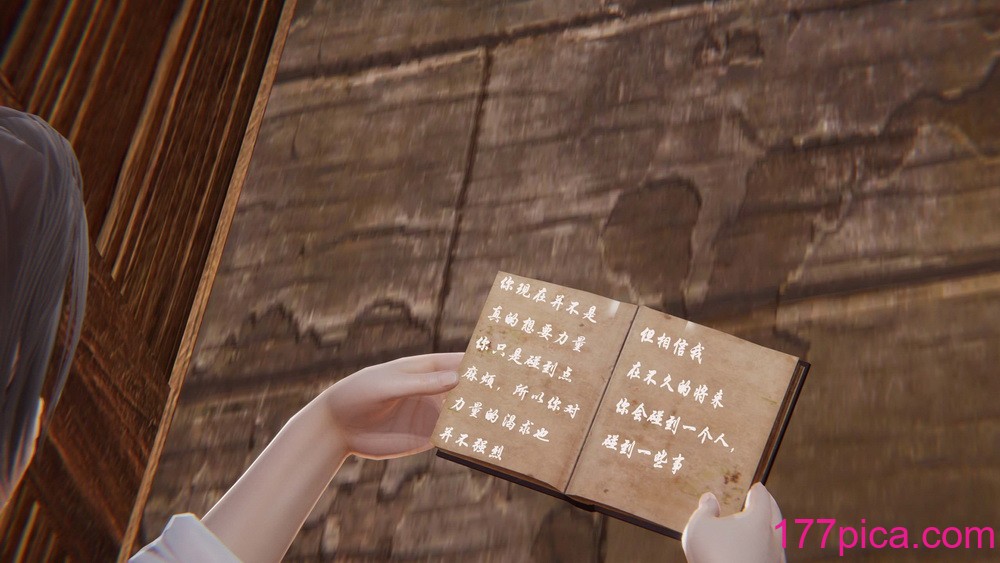 你现在并不是
真的想要力量
你只是碰到点
麻烦，所以你对
力量的渴求也
并不强烈
但相信我
在不久的将来
你会碰到一个人，
碰到一些事
177pica.com